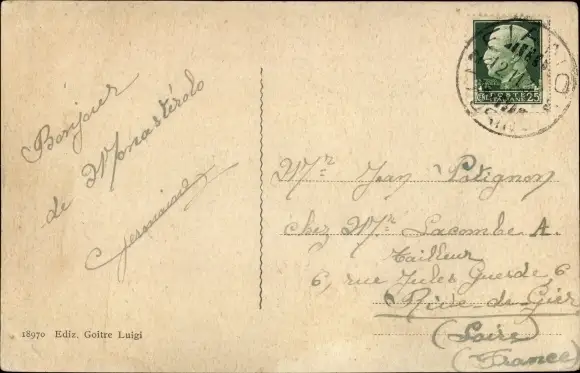 Bonjour
de Monastérolo
Germaine
18970 Ediz. Goitre Luigi
25
Mr Jean Potignon
chez Mr Lacombe A.
Tailleur
6, rue Jules Guesde, 6
Rive-de-Gier
(Loire)
(France)